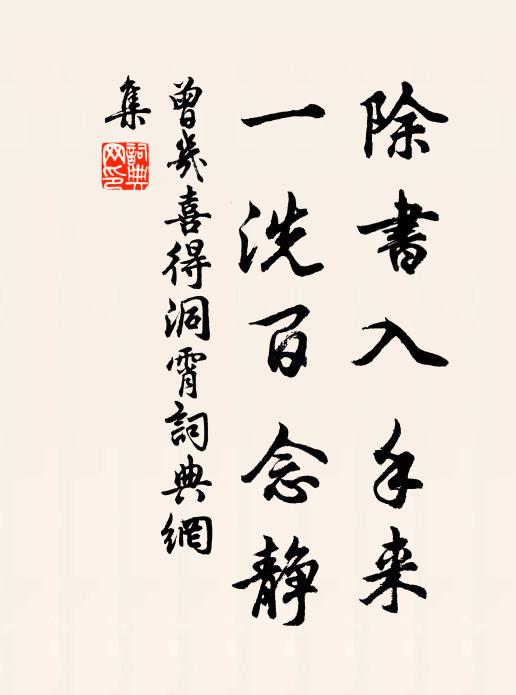 除書入手来
一洗百念静
曾幾喜得洞霄詞典網
集
詞典
网印